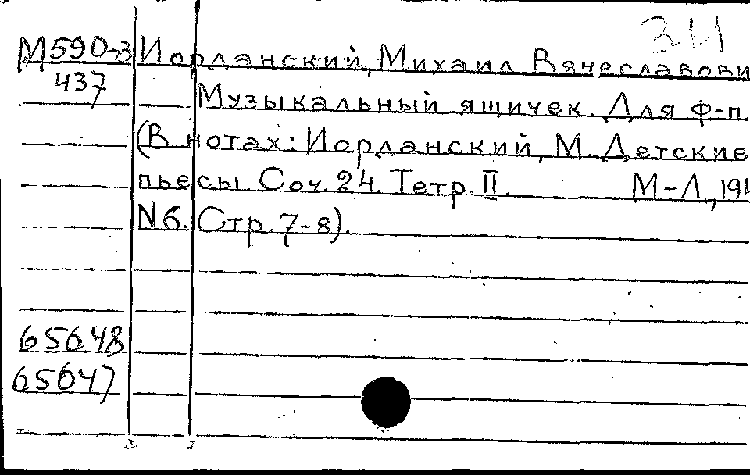 ЗИ
М590-3 Иорданский, Михаил Вячеславови
437 Музыкальный ящичек. Для ф-п.
(В нотах: Иорданский, М. Детские
пьесы. Соч. 24. Тетр. II. М-Л, 191
N6. Стр. 7-8).
65648
65647